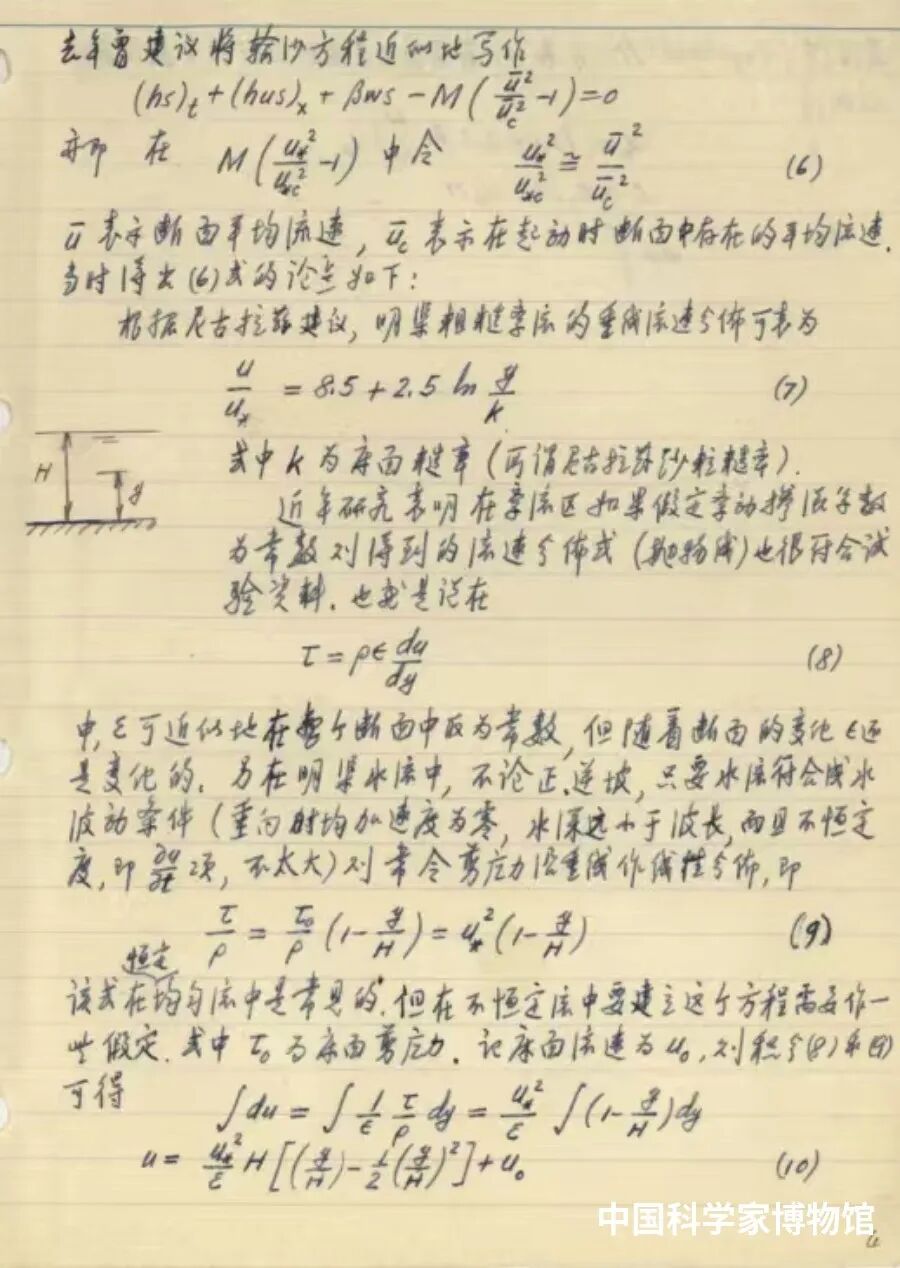 去年曾建议将输沙方程近似地写作
(hs)t + (hus)x + βws − M(ū²/ūc² −1) = 0
亦即 在 M(u*²/u*c² −1) 中令 u*²/u*c² ≅ ū²/ūc² (6)
ū 表示断面平均流速, ūc 表示在起动时断面中存在的平均流速.
当时得出(6)式的论点如下:
根据尼古拉兹建议, 明渠粗糙紊流的垂线流速分布可表为
u/u* = 8.5 + 2.5 ln y/k (7)
H
y
式中 k 为床面糙率 (所谓尼古拉兹沙粒糙率).
近年研究表明在紊流区如果假定紊动掺混系数
为常数则得到的流速分布式 (抛物线) 也很符合试
验资料. 也就是说在
τ = ρε du/dy (8)
中, ε可近似地在整个断面中取为常数, 但随着断面的变化 ε还
是变化的. 另在明渠水流中, 不论正.逆坡, 只要水流符合浅水
波动条件 (垂向时均加速度为零, 水深远小于波长, 而且不恒定
度, 即 ∂u/∂t 项, 不太大) 则常令剪应力沿垂线作线性分佈, 即
τ/ρ = τ₀/ρ (1−y/H) = u*² (1−y/H) (9)
恒定
该式在均匀流中是常见的. 但在不恒定流中要建立这个方程需要作一
些假定. 式中 τ₀ 为床面剪应力. 记床面流速为 u₀, 则积分(8)和(9)
可得
∫du = ∫ 1/ε τ/ρ dy = u*²/ε ∫(1−y/H)dy
u = u*²/ε H[(y/H)−1/2(y/H)²]+u₀ (10)
中国科学家博物馆
4